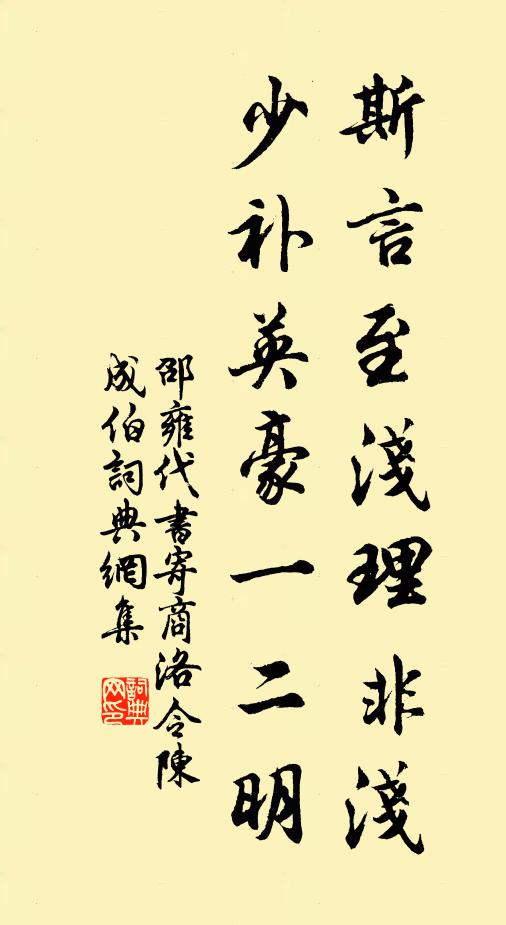 斯言至淺理非淺
少补英豪一二明
邵雍代書寄商洛令陳
成伯詞典網集
詞典
网印